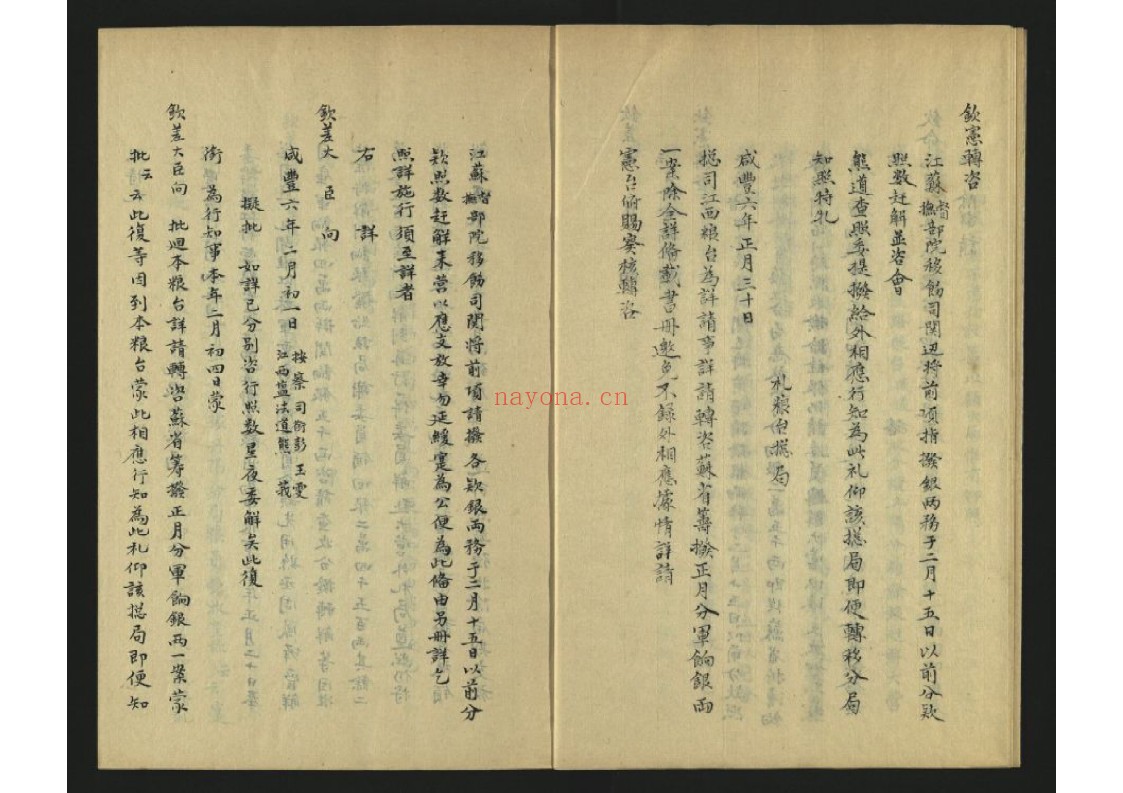 欽憲轉咨
江蘇督撫部院移飭司関迅将前項指撥銀两務于二月十五日以前分欵
照数赶解並咨會
熊道查照委提撥給外相應行知為此札仰該揔局即便轉移分局
知照特札
札粮台揔局
咸豐六年正月三十日
揔司江西粮台為詳請事詳請轉咨蘇省籌撥正月分軍餉銀両
一案除全詳備載書冊邀免不録外相應據情詳請
憲台俯賜察核轉咨
江蘇督撫部院移飭司関将前項請撥各欵銀両務于二月十五日以前分
欵照数赶解来營以應支放幸勿延緩寔為公便為此備由另冊詳乞
照詳施行須至詳者
右詳
欽差大臣向
咸豐六年二月初一日
按察司銜彭玉雯
江西盐法道熊
擬批 如詳已分別咨行照数星夜委解矣此復
銜為行知事本年二月初四日蒙
欽差大臣向 批廻本粮台詳請轉咨蘇省筹撥正月分軍餉銀両一案蒙
批云云此復等因到本粮台蒙此相應行知為此札仰該揔局即便知
nayona.cn